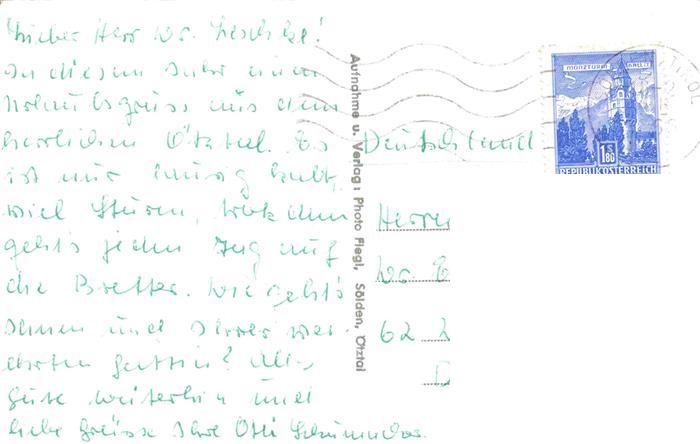 Lieber Herr Dr. 
In diesem Jahr einen
Urlaubsgruss aus dem
herrlichen Ötztal. Es
ist nur eisig kalt,
viel Sturm, trotzdem
geht's jeden Tag auf
die Bretter. Wie geht's
Ihnen und Ihrer wer-
ehrten Gattin? Alles
Gute weiterhin und
liebe Grüsse Ihre
Aufnahme u. Verlag: Photo Fiegl, Sölden, Ötztal
MÜNZTURM HALL i.T.
1 S 80
REPUBLIK ÖSTERREICH
TIROL
Deutschland
Herrn
Dr. E
62